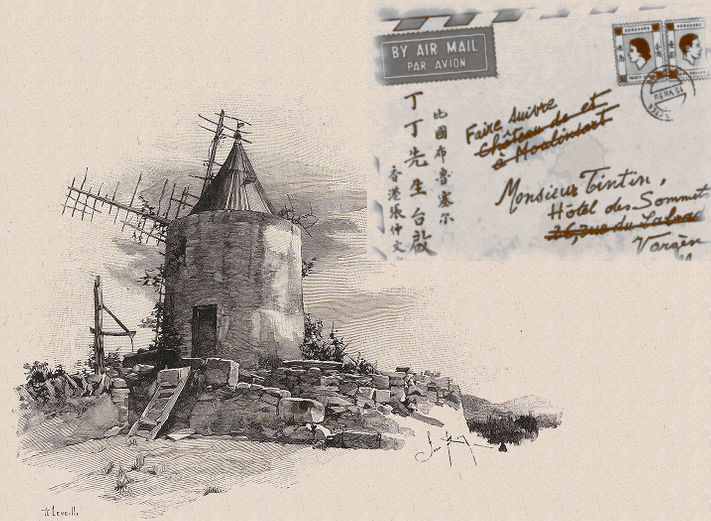 BY AIR MAIL
PAR AVION
丁丁先生台啟
比國布魯塞尔
香港張仲文
Faire suivre
Château de et
à Moulinsart
Monsieur Tintin,
Hôtel des Sommets
26, rue du Labrador
Vargèse